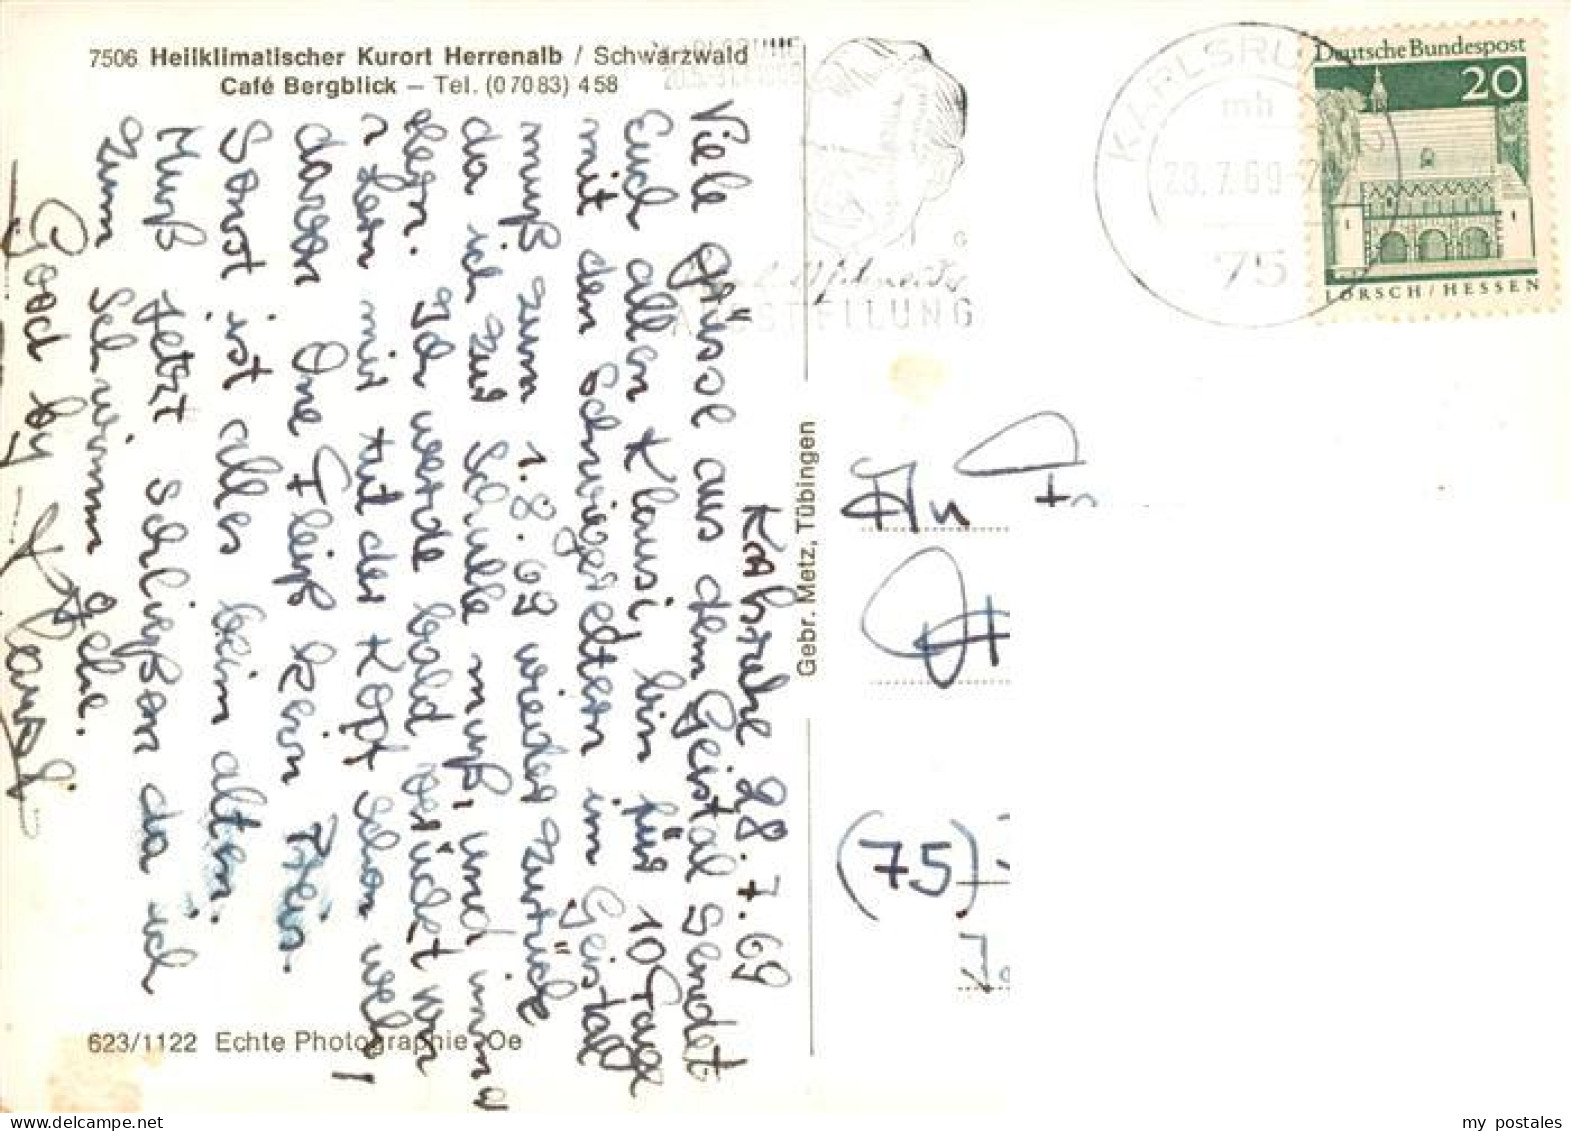 7506 Heilklimatischer Kurort Herrenalb / Schwarzwald
Café Bergblick – Tel. (07083) 458
Viele grüsse aus dem Geistal sendet
Euch allen Klausi, bin für 10 Tage
mit den Schwiegereltern im Geistall
muß zum 1.8.69 wieder zurück
da ich zur Schulle muß, und
legn. Ich werde bald verückt
mir tut der Kopf schon weh!
davon One Fleiß kein Preis.
Sonst ist alles beim altem.
Muß jetzt schlißen da ich
zum Schwimm gehe.
Good by Klausi
28.7.69
623/1122 Echte Photographie Oe
Gebr. Metz, Tübingen
KARLSRUHE
mh
28.7.69
75
AUSSTELLUNG
Deutsche Bundespost
20
LORSCH/HESSEN
An
(75)
my postales